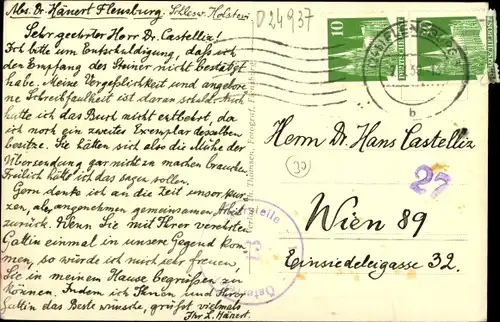 Abs. Dr. Hänert Flensburg. Schlesw. Holstein
D24937
Sehr geehrter Herr Dr. Castelliz!
Ich bitte um Entschuldigung, daß ich
den Empfang des Steiner nicht bestätigt
habe. Meine Vergeßlichkeit und angebore-
ne Schreibfaulheit ist daran schuld. Auch
hatte ich das Buch nicht entbehrt, da
ich noch ein zweites Exemplar desselben
besitze. Sie hätten sich also die Mühe der
Übersendung gar nicht zu machen brauchen.
Freilich hätte ich das sagen sollen.
Gern denke ich an die Zeit unsrer kur-
zen, aber angenehmen gemeinsamen Arbeit
zurück. Wenn Sie mit Ihrer verehrten
Gattin einmal in unsere Gegend kom-
men, so würde ich mich sehr freuen,
Sie in meinem Hause begrüßen zu
können. Indem ich Ihnen und Ihrer
Gattin das Beste wünsche, grüßt vielmals
Ihr L. Hänert.
10
FLENSBURG
b
Herrn Dr. Hans Castelliz
27
Wien 89
Einsiedeleigasse 32.